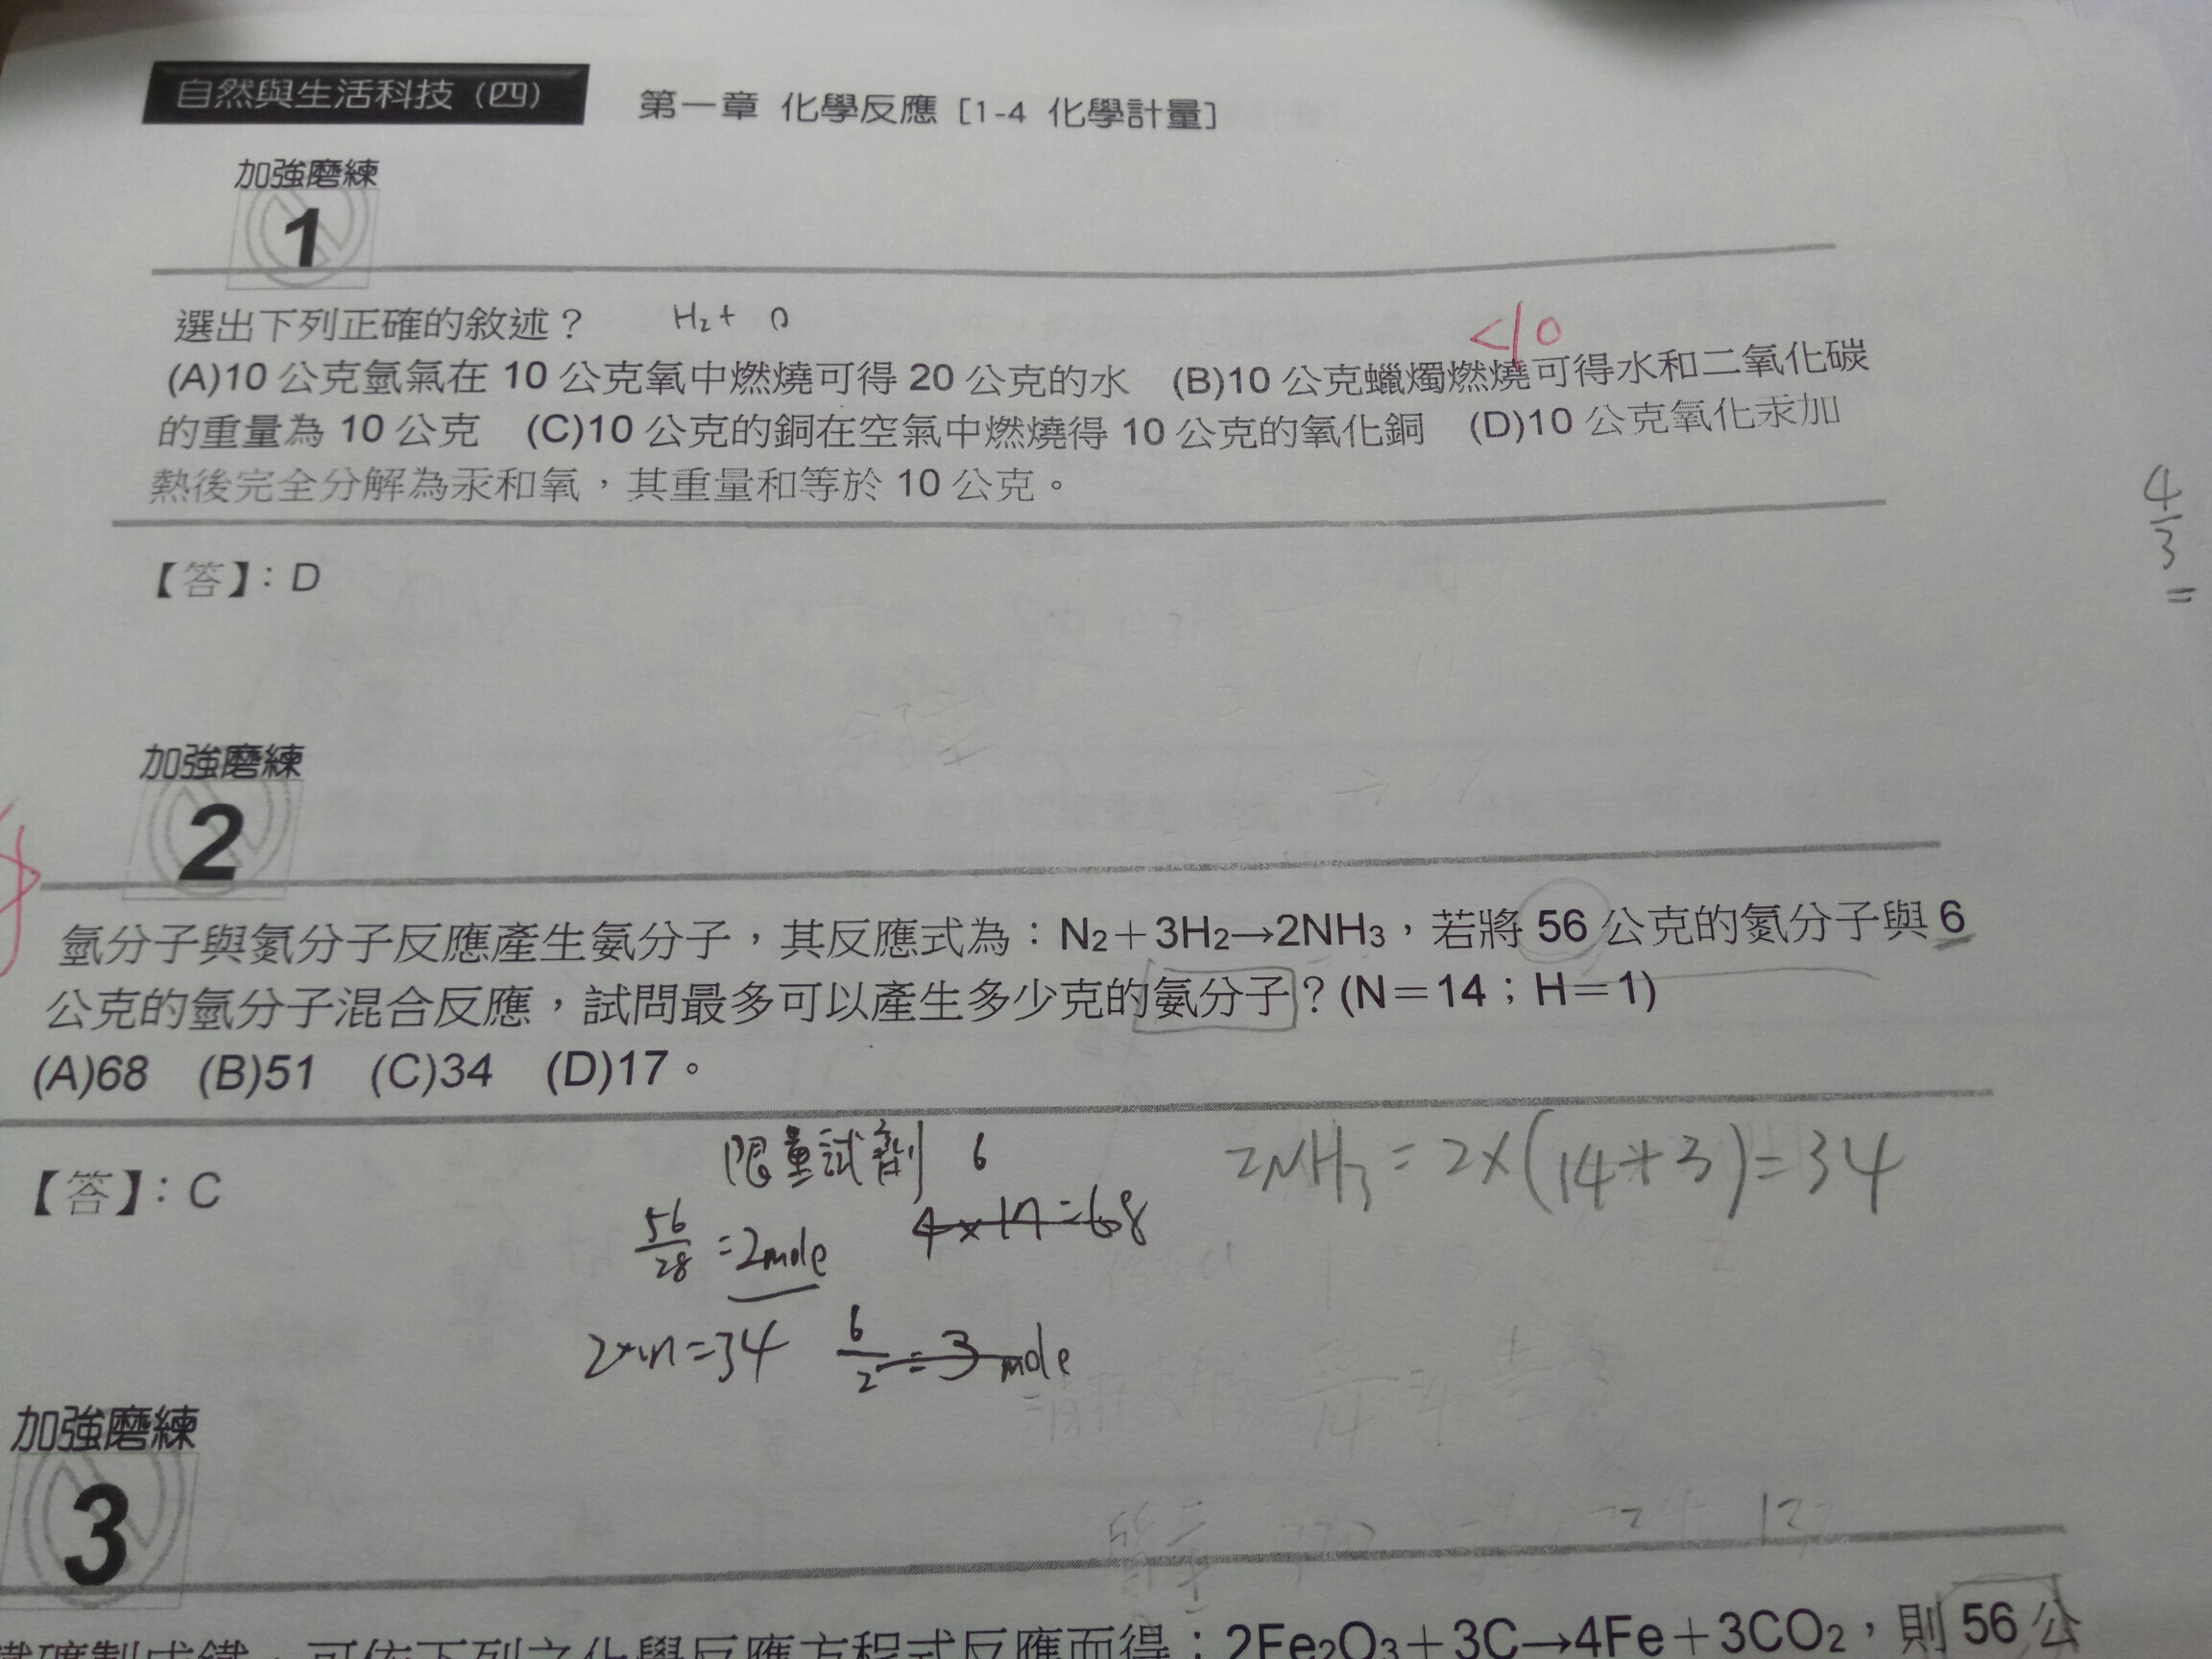 自然與生活科技（四） 第一章 化學反應［1-4 化學計量］
加強磨練
1
選出下列正確的敘述？ H₂ + O
<10
(A)10 公克氫氣在 10 公克氧中燃燒可得 20 公克的水 (B)10 公克蠟燭燃燒可得水和二氧化碳
的重量為 10 公克 (C)10 公克的銅在空氣中燃燒得 10 公克的氧化銅 (D)10 公克氧化汞加
熱後完全分解為汞和氧，其重量和等於 10 公克。
4/3 =
【答】：D
加強磨練
2
氫分子與氮分子反應產生氨分子，其反應式為：N₂＋3H₂→2NH₃，若將 56 公克的氮分子與 6
公克的氫分子混合反應，試問最多可以產生多少克的氨分子？(N＝14；H＝1)
(A)68 (B)51 (C)34 (D)17。
【答】：C
限量試劑 6
2NH₃ = 2×(14+3)=34
56/28 = 2mole 4×17=68
2×17=34 6/2 = 3 mole
加強磨練
3
鐵礦製成鐵，可依下列之化學反應方程式反應而得：2Fe₂O₃＋3C→4Fe＋3CO₂，則 56 公